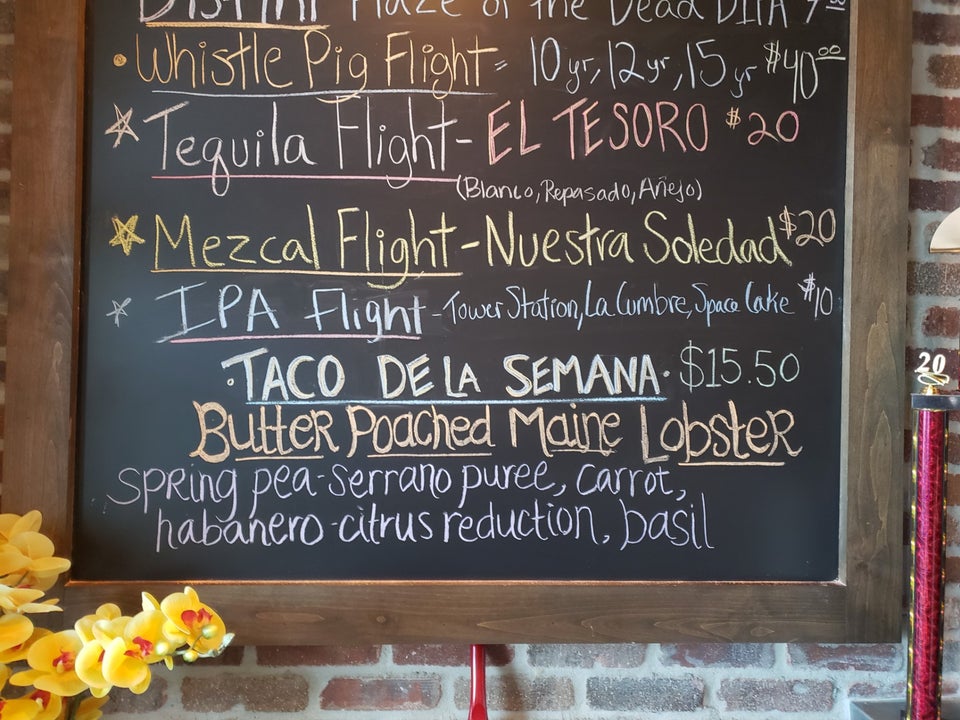 Maze of the Dead DIPA
Whistle Pig Flight = 10 yr, 12 yr, 15 yr $40.00
Tequila Flight - EL TESORO $20
(Blanco, Repasado, Añejo)
Mezcal Flight - Nuestra Soledad $20
IPA Flight - Tower Station, La Cumbre, Space Cake $10
·TACO DE LA SEMANA· $15.50
Butter Poached Maine Lobster
spring pea-serrano puree, carrot,
habanero-citrus reduction, basil
20